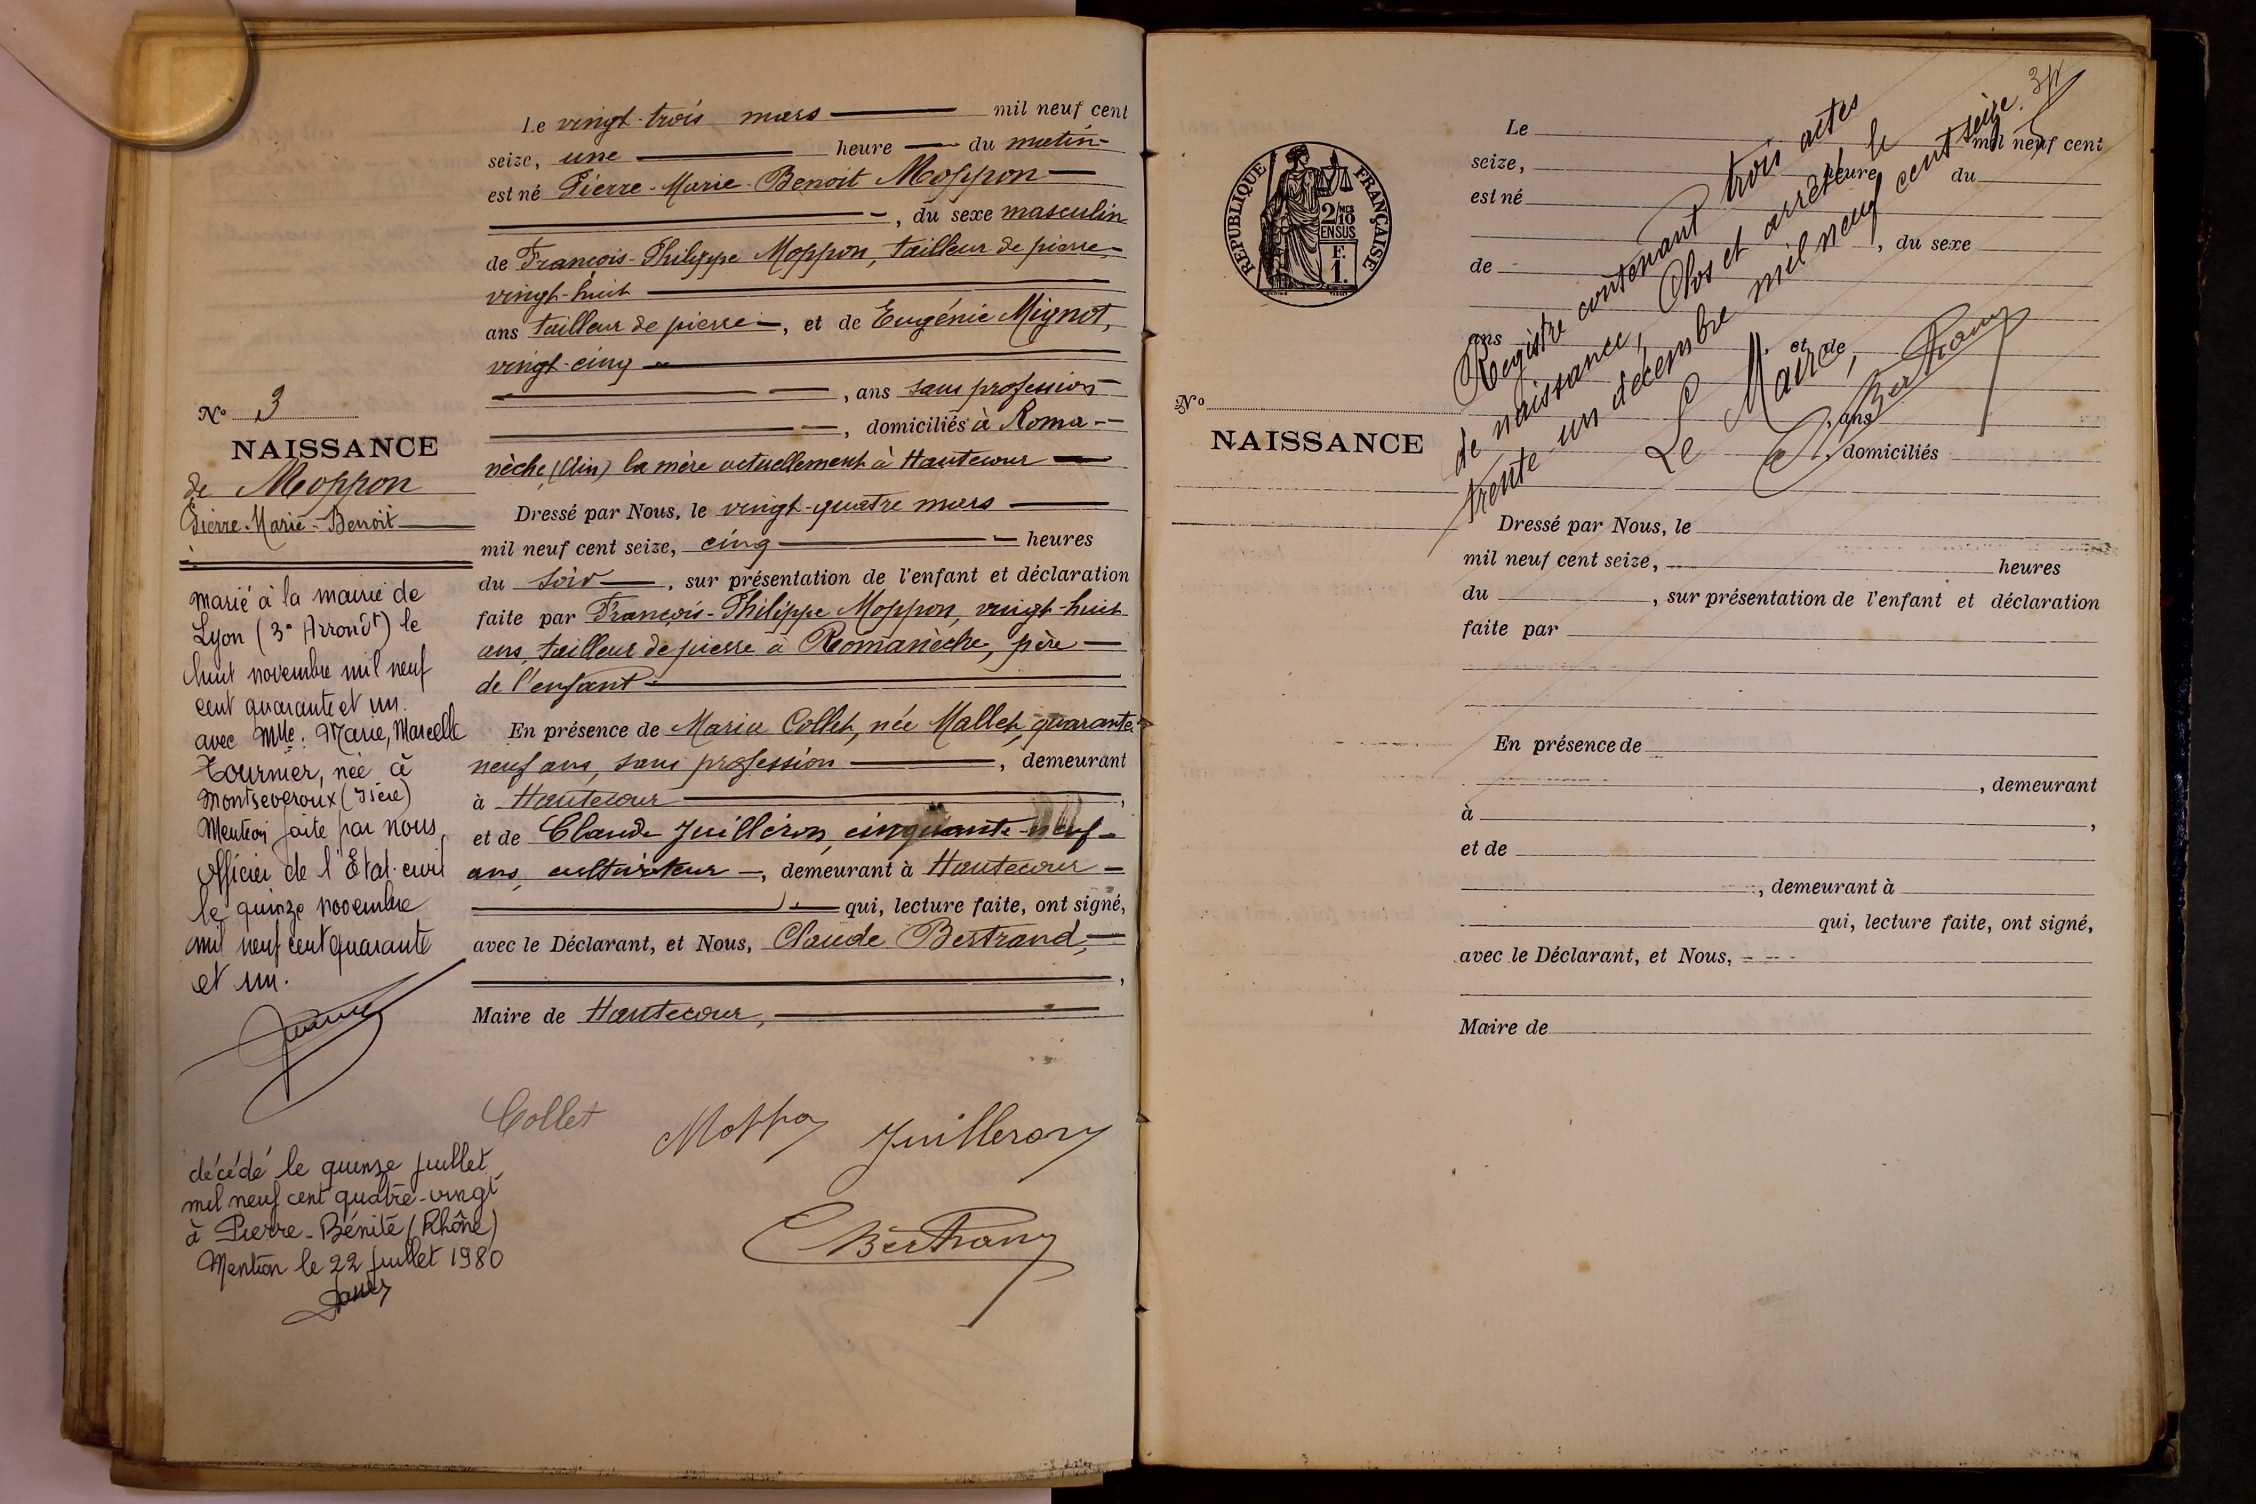 Le vingt-trois mars mil neuf cent
seize, une heure du matin
est né Pierre-Marie-Benoit Moppon
, du sexe masculin
de François-Philippe Moppon, tailleur de pierre
vingt-huit
ans tailleur de pierre, et de Eugénie Mignot,
vingt-cinq
, ans sans profession
, domiciliés à Roma-
nèche (Ain) la mère actuellement à Hautecour
Dressé par Nous, le vingt-quatre mars
mil neuf cent seize, cinq heures
du soir, sur présentation de l'enfant et déclaration
faite par François-Philippe Moppon, vingt-huit
ans, tailleur de pierre à Romanèche, père
de l'enfant
En présence de Maria Collet, née Mallet, quarante
neuf ans, sans profession, demeurant
à Hautecour,
et de Claude Juilléron, cinquante-neuf
ans, cultivateur, demeurant à Hautecour
qui, lecture faite, ont signé,
avec le Déclarant, et Nous, Claude Bertrand,
,
Maire de Hautecour,
Collet Moppon Juilleron
C Bertrand
No 3
NAISSANCE
de Moppon
Pierre-Marie-Benoit
marié à la mairie de
Lyon (3e Arrondt) le
huit novembre mil neuf
cent quarante et un.
avec Mlle: Marie, Marcelle
Tournier, née à
Montseveroux (Isère)
Mention faite par nous
Officier de l'Etat-civil
le quinze novembre
mil neuf cent quarante
et un.
décédé le quinze juillet
mil neuf cent quatre-vingt
à Pierre-Bénite (Rhône)
Mention le 22 juillet 1980
REPUBLIQUE FRANÇAISE
2/10
MES
EN SUS
F.
1.
No
NAISSANCE
Le mil neuf cent
seize, heure du
est né
, du sexe
de
ans et de
, ans
, domiciliés
Dressé par Nous, le
mil neuf cent seize, heures
du , sur présentation de l'enfant et déclaration
faite par
En présence de
, demeurant
à ,
et de
, demeurant à
qui, lecture faite, ont signé,
avec le Déclarant, et Nous,
Maire de
Registre contenant trois actes
de naissance, Clos et arrêté le
trente un décembre mil neuf cent seize.
Le Maire,
C. Bertrand